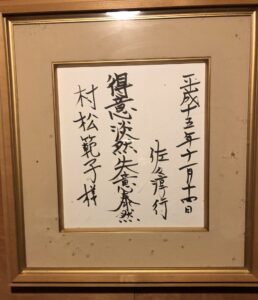 平成十五年十一月十四日
佐々淳行
得意淡然失意泰然
村松範子様